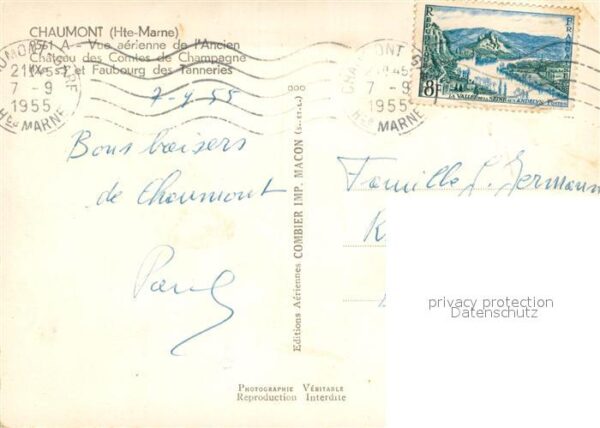 CHAUMONT (Hte-Marne)
9561 A - Vue aérienne de l'Ancien
Château des Comtes de Champagne
(Xe s.) et Faubourg des Tanneries
21H45
7-9
1955
Hte MARNE
CHAUMONT
7-9
1955
Hte MARNE
RÉPUBLIQUE
FRANÇAISE
18F
LA VALLÉE DE LA SEINE AUX ANDELYS
Postes
7-9-55
Bons baisers
de Chaumont
Paul
Editions Aériennes COMBIER IMP. MACON (S.-et-L.)
Famille L. Germann
K
privacy protection
Datenschutz
PHOTOGRAPHIE VÉRITABLE
Reproduction Interdite